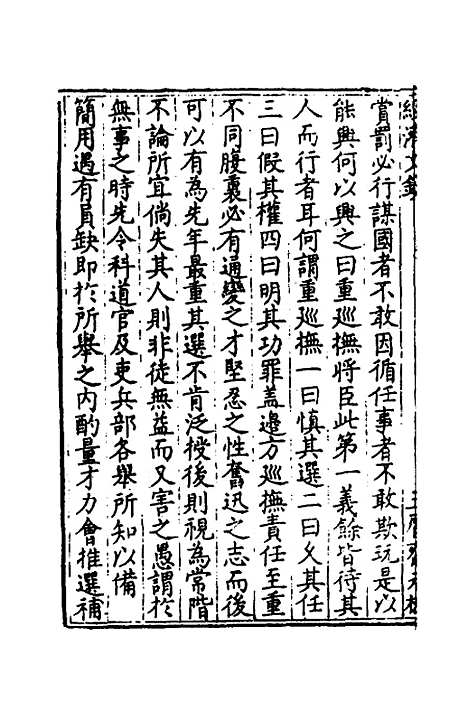 賞罰必行謀國者不敢因循任事者不敢欺玩是以
能興何以興之曰重廵撫將臣此第一義餘皆待其
人而行者耳何謂重廵撫一曰慎其選二曰久其任
三曰假其權四曰明其功罪蓋邊方廵撫責任至重
不同腹裏必有通變之才堅忍之性奮迅之志而後
可以有為先年最重其選不肯泛授後則視為常階
不論所宜倘失其人則非徒無益而又害之愚謂於
無事之時先令科道官及吏兵部各舉所知以備
簡用遇有員缺即於所舉之内酌量才力會推選補